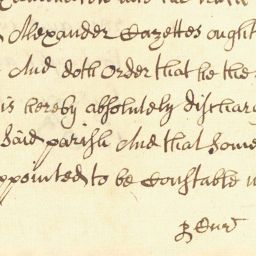 Alexander Gazettes ought
And doth Order that he the
is hereby absolutely dischar
Said parish And that some
ppointed to be Constable
p Cur